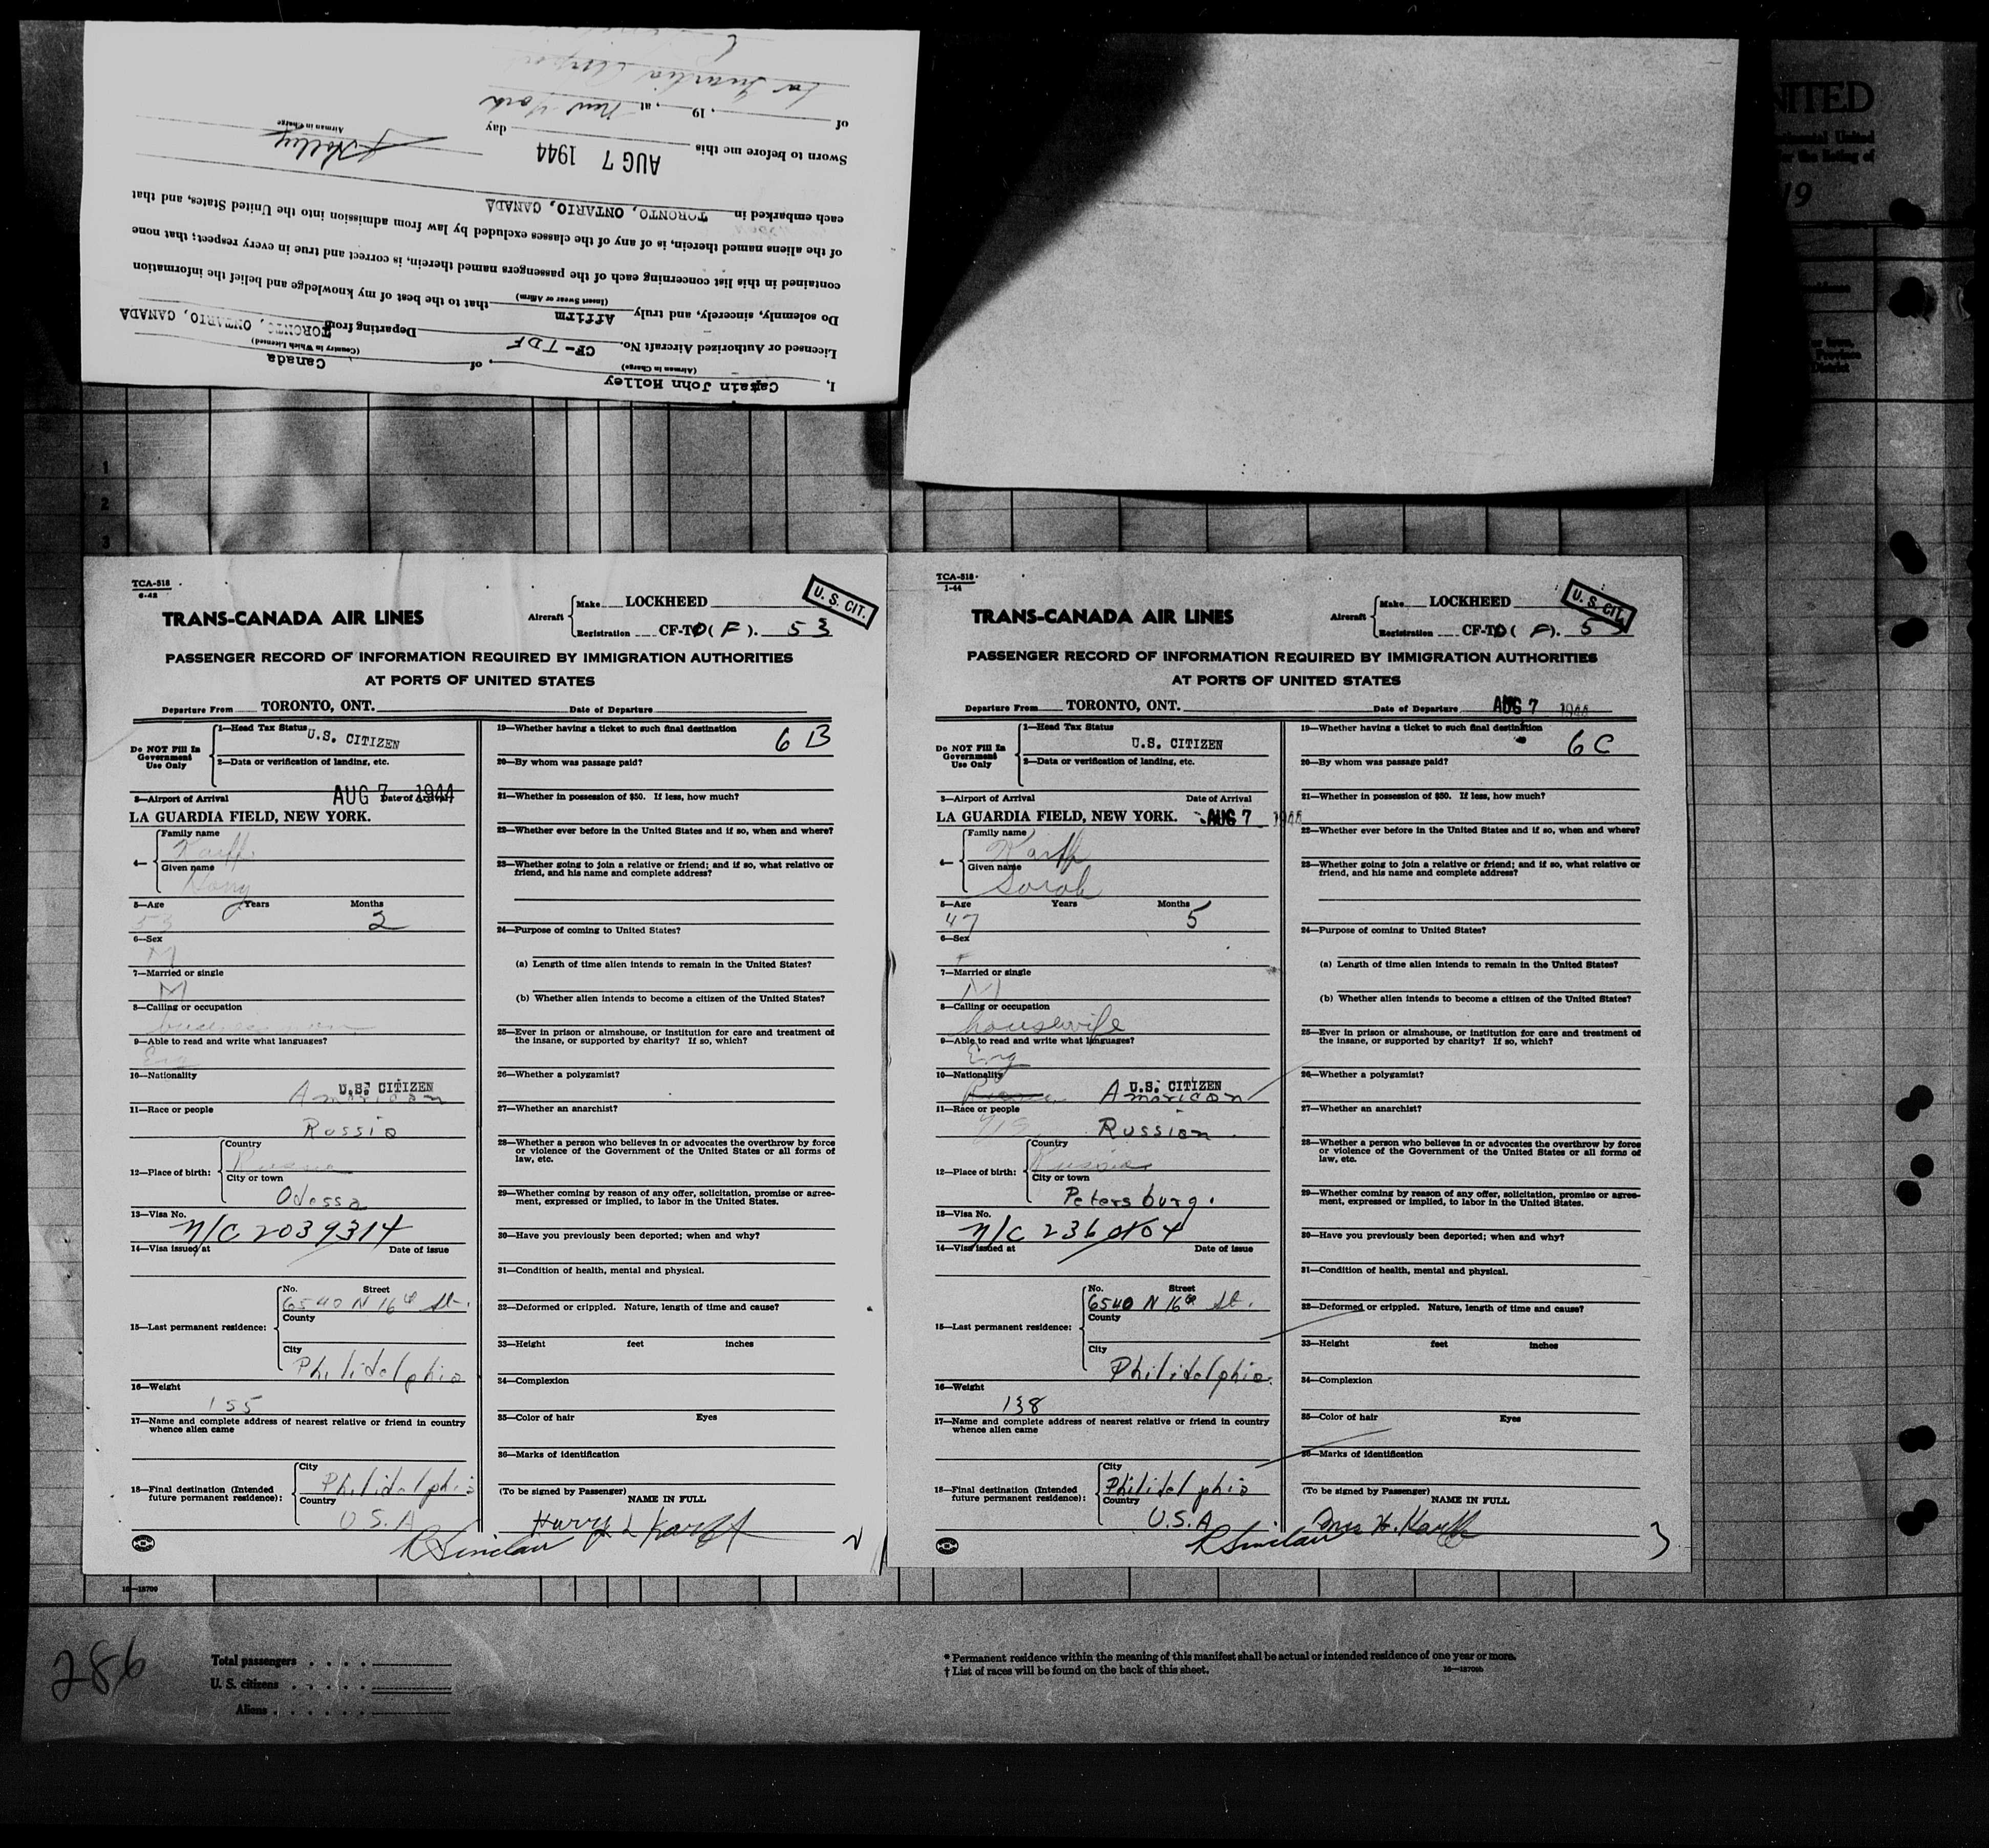 I, Captain John Holley of Canada
(Airman in Charge) (Country in Which Licensed)
Licensed or Authorized Aircraft No. CF-TDF Departing from TORONTO, ONTARIO, CANADA
Do solemnly, sincerely, and truly Affirm that to the best of my knowledge and belief the information
(Insert Swear or Affirm)
contained in this list concerning each of the passengers named therein, is correct and true in every respect; that none
of the aliens named therein, is of any of the classes excluded by law from admission into the United States, and that
each embarked in TORONTO, ONTARIO, CANADA
Sworn to before me this AUG 7 1944 day
J Holley
Airman in Charge
of , 19 , at New York
La Guardia Airport
NITED
19
1
2
3
TCA-518
6-42
TRANS-CANADA AIR LINES
Aircraft
Make LOCKHEED
Registration CF-TD (F). 53
U. S. CIT.
PASSENGER RECORD OF INFORMATION REQUIRED BY IMMIGRATION AUTHORITIES
AT PORTS OF UNITED STATES
Departure From TORONTO, ONT. Date of Departure
Do NOT Fill In
Government
Use Only
1—Head Tax Status U.S. CITIZEN
2—Data or verification of landing, etc.
3—Airport of Arrival Date of Arrival AUG 7 1944
LA GUARDIA FIELD, NEW YORK.
4—
Family name
Karff
Given name
Harry
5—Age Years Months
53 2
6—Sex
M
7—Married or single
M
8—Calling or occupation
businessman
9—Able to read and write what languages?
Eng
10—Nationality
U.S. CITIZEN
American
11—Race or people
Russia
12—Place of birth:
Country
Russia
City or town
Odessa
13—Visa No.
N/C 2039314
14—Visa issued at Date of issue
15—Last permanent residence:
No. Street
6540 N 16th St.
County
City
Philidelphia
16—Weight
155
17—Name and complete address of nearest relative or friend in country
whence alien came
18—Final destination (Intended
future permanent residence):
City
Philidelphia
Country
U.S.A
19—Whether having a ticket to such final destination
6 B
20—By whom was passage paid?
21—Whether in possession of $50. If less, how much?
22—Whether ever before in the United States and if so, when and where?
23—Whether going to join a relative or friend; and if so, what relative or
friend, and his name and complete address?
24—Purpose of coming to United States?
(a) Length of time alien intends to remain in the United States?
(b) Whether alien intends to become a citizen of the United States?
25—Ever in prison or almshouse, or institution for care and treatment of
the insane, or supported by charity? If so, which?
26—Whether a polygamist?
27—Whether an anarchist?
28—Whether a person who believes in or advocates the overthrow by force
or violence of the Government of the United States or all forms of
law, etc.
29—Whether coming by reason of any offer, solicitation, promise or agree-
ment, expressed or implied, to labor in the United States.
30—Have you previously been deported; when and why?
31—Condition of health, mental and physical.
32—Deformed or crippled. Nature, length of time and cause?
33—Height feet inches
34—Complexion
35—Color of hair Eyes
36—Marks of identification
(To be signed by Passenger)
NAME IN FULL
Harry L Karff
R Sinclair
2
TCA-518
1-44
TRANS-CANADA AIR LINES
Aircraft
Make LOCKHEED
Registration CF-TD (F). 53
U. S. CIT.
PASSENGER RECORD OF INFORMATION REQUIRED BY IMMIGRATION AUTHORITIES
AT PORTS OF UNITED STATES
Departure From TORONTO, ONT. Date of Departure AUG 7 1944
Do NOT Fill In
Government
Use Only
1—Head Tax Status
U.S. CITIZEN
2—Data or verification of landing, etc.
3—Airport of Arrival Date of Arrival
LA GUARDIA FIELD, NEW YORK. AUG 7 1944
4—
Family name
Karff
Given name
Sarah
5—Age Years Months
47 5
6—Sex
F
7—Married or single
M
8—Calling or occupation
housewife
9—Able to read and write what languages?
Eng
10—Nationality
U.S. CITIZEN
American
11—Race or people
Russian
12—Place of birth:
Country
Russia
City or town
Petersburg.
13—Visa No.
14—Visa issued at Date of issue
15—Last permanent residence:
No. Street
6540 N 16th St.
County
City
Philidelphia
16—Weight
138
17—Name and complete address of nearest relative or friend in country
whence alien came
18—Final destination (Intended
future permanent residence):
City
Philidelphia
Country
U.S.A
19—Whether having a ticket to such final destination
6 C
20—By whom was passage paid?
21—Whether in possession of $50. If less, how much?
22—Whether ever before in the United States and if so, when and where?
23—Whether going to join a relative or friend; and if so, what relative or
friend, and his name and complete address?
24—Purpose of coming to United States?
(a) Length of time alien intends to remain in the United States?
(b) Whether alien intends to become a citizen of the United States?
25—Ever in prison or almshouse, or institution for care and treatment of
the insane, or supported by charity? If so, which?
26—Whether a polygamist?
27—Whether an anarchist?
28—Whether a person who believes in or advocates the overthrow by force
or violence of the Government of the United States or all forms of
law, etc.
29—Whether coming by reason of any offer, solicitation, promise or agree-
ment, expressed or implied, to labor in the United States.
30—Have you previously been deported; when and why?
31—Condition of health, mental and physical.
32—Deformed or crippled. Nature, length of time and cause?
33—Height feet inches
34—Complexion
35—Color of hair Eyes
36—Marks of identification
(To be signed by Passenger)
NAME IN FULL
Mrs H. Karff
R Sinclair
3
16—18709
286
Total passengers
U. S. citizens
Aliens
* Permanent residence within the meaning of this manifest shall be actual or intended residence of one year or more.
† List of races will be found on the back of this sheet.